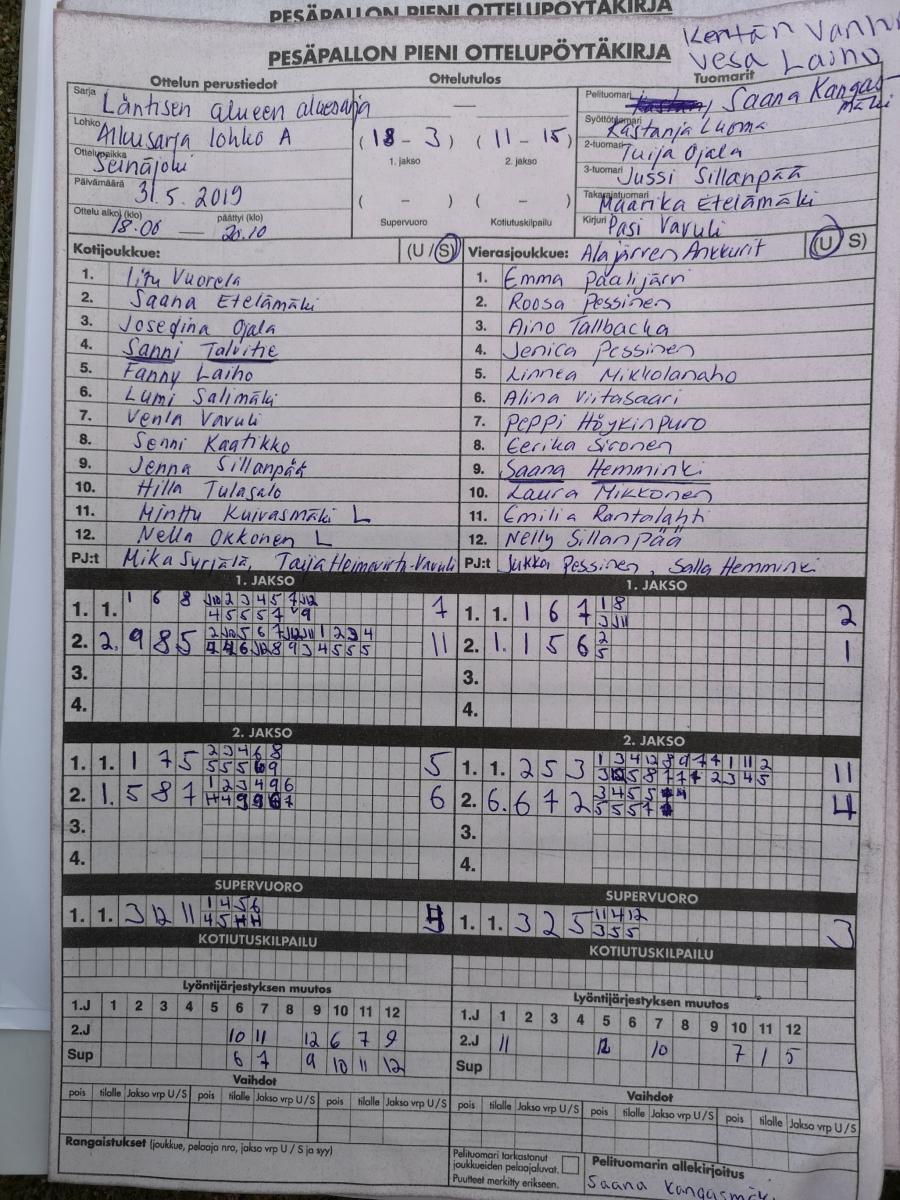 PESÄPALLON PIENI OTTELUPÖYTÄKIRJA
PESÄPALLON PIENI OTTELUPÖYTÄKIRJA
Kentän Vanh
Vesa Laiho
Ottelun perustiedot Ottelutulos Tuomarit
Sarja Läntisen alueen aluesarja
Lohko Aluusarja lohko A
Ottelupaikka Seinäjoki
Päivämäärä 31.5.2019
Ottelu alkoi (klo) 18.06 — päättyi (klo) 20.10
(18 - 3) (11 - 15)
1. jakso 2. jakso
( - ) ( - )
Supervuoro Kotiutuskilpailu
Pelituomari Saana Kangasmäki
Syöttötuomari Kastanja Luoma
2-tuomari Tuija Ojala
3-tuomari Jussi Sillanpää
Takarajatuomari Maarika Etelämäki
Kirjuri Pasi Vavuli
Kotijoukkue: (U / S)
1. Iitu Vuorela
2. Saana Etelämäki
3. Josefina Ojala
4. Sanni Talvitie
5. Fanny Laiho
6. Lumi Salimäki
7. Venla Vavuli
8. Senni Kaatikko
9. Jenna Sillanpää
10. Hilla Tulasalo
11. Minttu Kuivasmäki L
12. Nella Okkonen L
PJ:t Mika Syrjälä, Taija Heimovirta-Vavuli
Vierasjoukkue: Alajärven Ankkurit (U S)
1. Emma Paalijärvi
2. Roosa Pessinen
3. Aino Tallbacka
4. Jenica Pessinen
5. Linnea Mikkolanaho
6. Alina Viitasaari
7. Peppi Höykinpuro
8. Eerika Sironen
9. Saana Hemminki
10. Laura Mikkonen
11. Emilia Rantalahti
12. Nelly Sillanpää
PJ:t Jukka Pessinen, Salla Hemminki
1. JAKSO
1. 1. 1 6 8 7
2. 2. 9 8 5 11
3.
4.
1. JAKSO
1. 1. 1 6 7 1 8 2
2. 1. 1 5 6 2 5 1
3.
4.
2. JAKSO
1. 1. 1 7 5 2 3 4 6 8 5
2. 1. 5 8 7 1 2 3 4 9 6 6
3.
4.
2. JAKSO
1. 1. 2 5 3 1 3 4 12 8 9 7 4 1 11 2 11
2. 6. 6 7 2 4
3.
4.
SUPERVUORO
1. 1. 3 12 11 1 4 5 6
SUPERVUORO
1. 1. 3 2 5 11 4 12 3
3 5 5
KOTIUTUSKILPAILU
KOTIUTUSKILPAILU
Lyöntijärjestyksen muutos
1.J 1 2 3 4 5 6 7 8 9 10 11 12
2.J 10 11 12 6 7 9
Sup 6 7 9 10 11 12
Lyöntijärjestyksen muutos
1.J 1 2 3 4 5 6 7 8 9 10 11 12
2.J 11 12 10 7 1 5
Sup
Vaihdot
pois tilalle Jakso vrp U / S pois tilalle Jakso vrp U / S pois tilalle Jakso vrp U / S
Vaihdot
pois tilalle Jakso vrp U / S pois tilalle Jakso vrp U / S pois tilalle Jakso vrp U / S
Rangaistukset (joukkue, pelaaja nro, jakso vrp U / S ja syy)
Pelituomari tarkastanut
joukkueiden pelaajaluvat.
Puutteet merkitty erikseen.
Pelituomarin allekirjoitus
Saana Kangasmäk